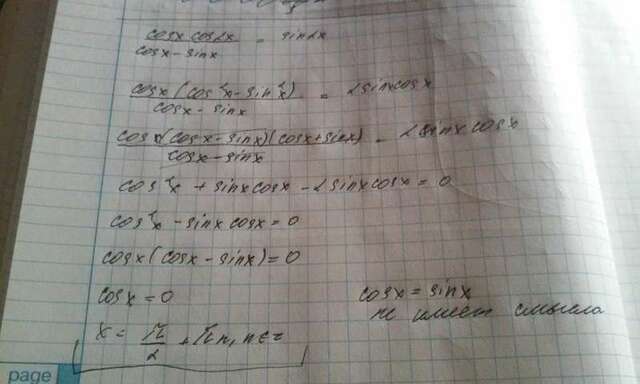 cosx cos2x / cosx - sinx = sin2x
cosx (cos²x - sin²x) / cosx - sinx = 2sinxcosx
cosx(cosx - sinx)(cosx + sinx) / cosx - sinx = 2sinx cosx
cos²x + sinxcosx - 2sinxcosx = 0
cos²x - sinxcosx = 0
cosx (cosx - sinx) = 0
cosx = 0
cosx = sinx
не имеет смысла
x = π/2 + πn, n∈z
page